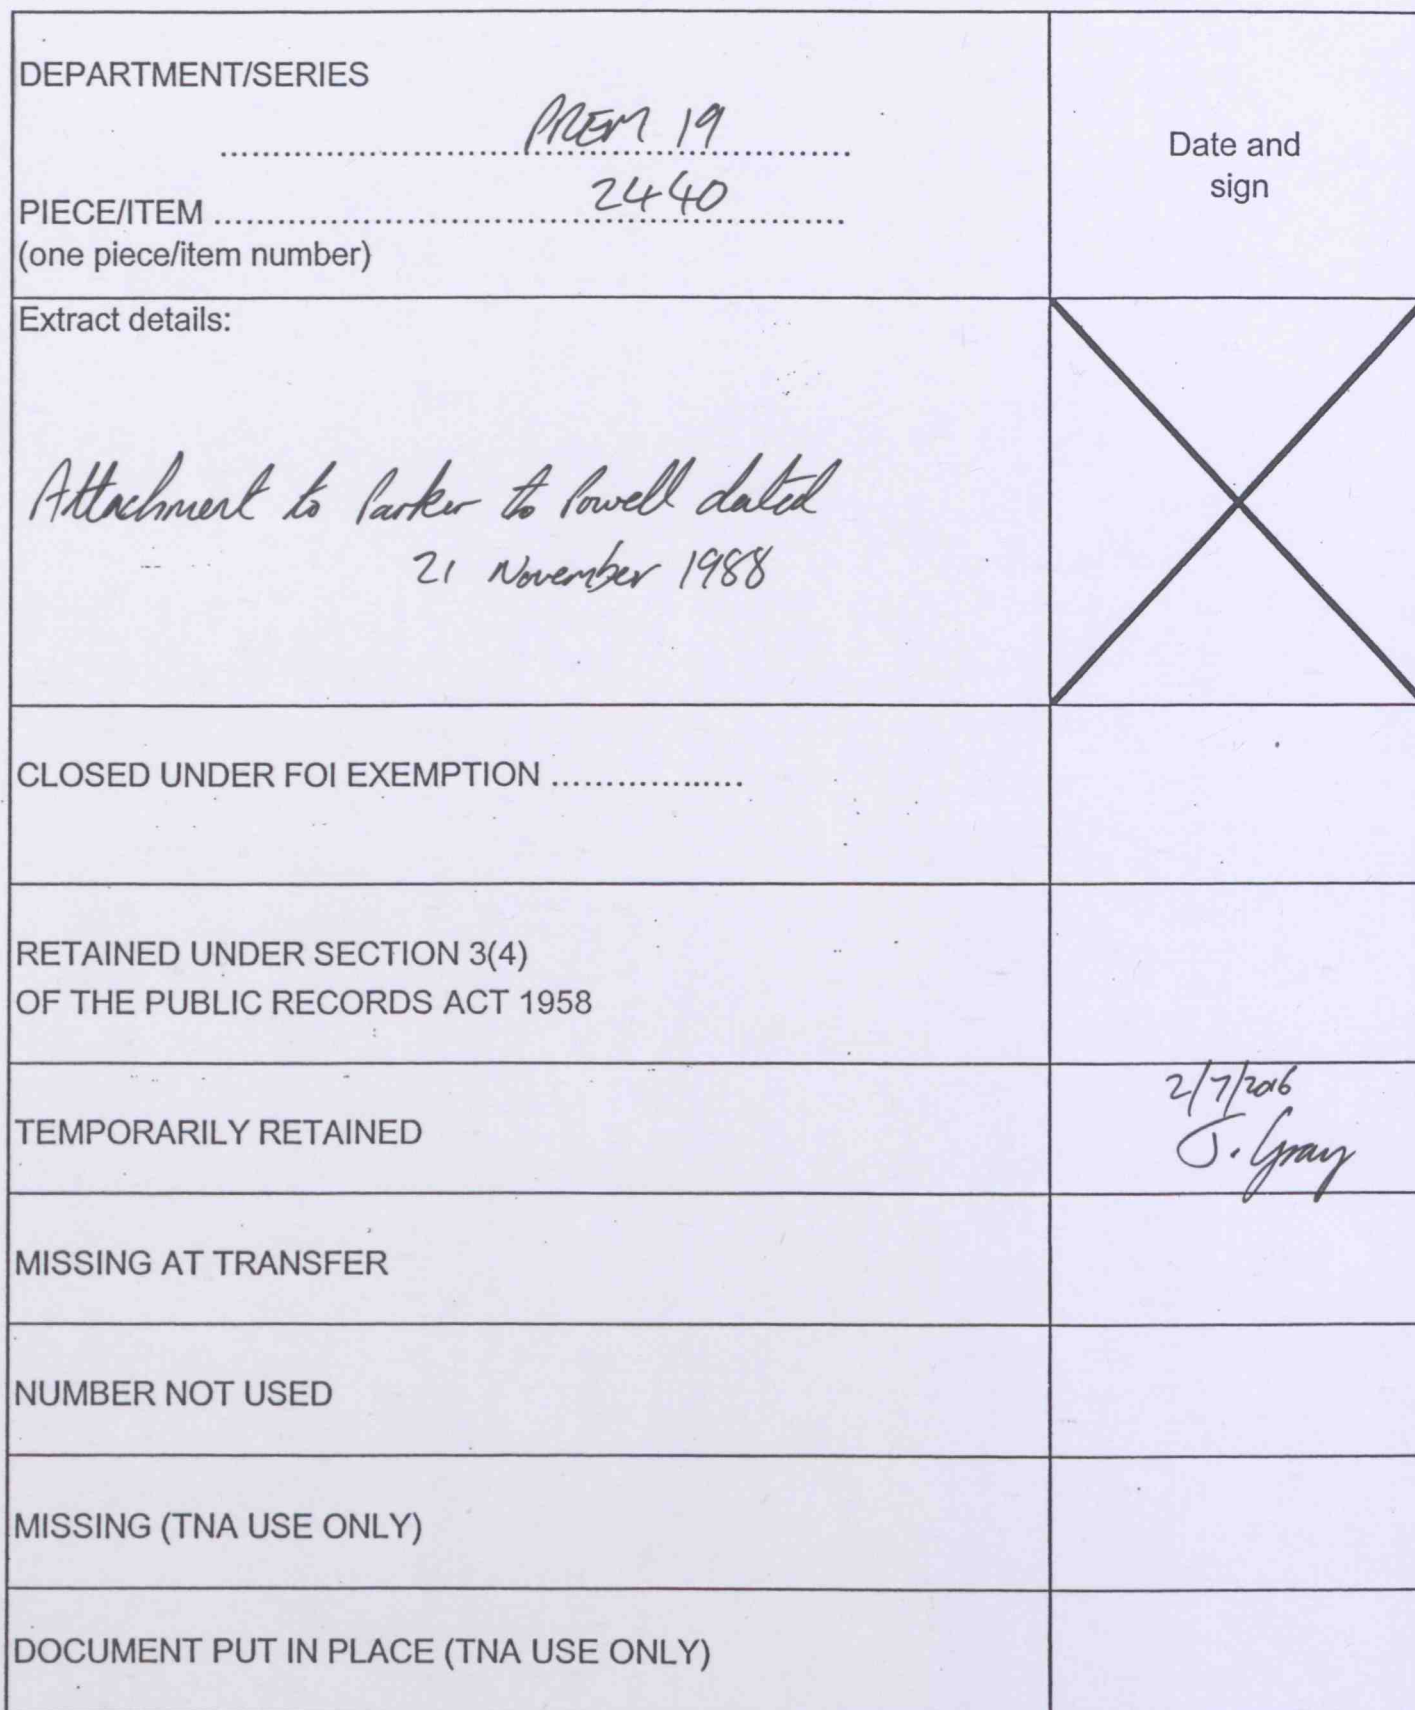 DEPARTMENT/SERIES
PREM 19
PIECE/ITEM 2440
(one piece/item number)
Date and
sign
Extract details:
Attachment to Parker to Powell dated
21 November 1988
CLOSED UNDER FOI EXEMPTION ..................
RETAINED UNDER SECTION 3(4)
OF THE PUBLIC RECORDS ACT 1958
TEMPORARILY RETAINED
2/7/2016
J. Gray
MISSING AT TRANSFER
NUMBER NOT USED
MISSING (TNA USE ONLY)
DOCUMENT PUT IN PLACE (TNA USE ONLY)